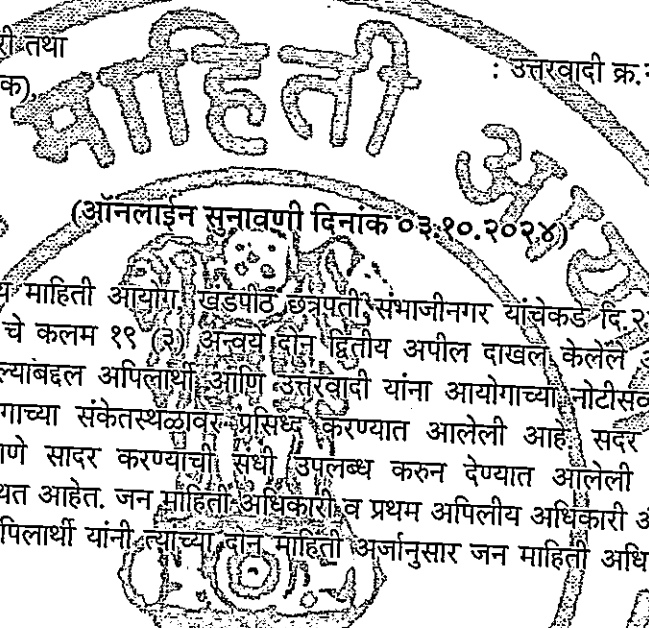 री तथा
: उत्तरवादी क्र.
क),
माहिती
(ऑनलाईन सुनावणी दिनांक ०३.१०.२०२४)
य माहिती आयोग, खंडपीठ छत्रपती संभाजीनगर यांचेकडे दि.२
चे कलम १९ (३) अन्वये दोन द्वितीय अपील दाखल केलेले
ल्याबद्दल अपिलार्थी आणि उत्तरवादी यांना आयोगाच्या नोटीसव
गाच्या संकेतस्थळावर प्रसिध्द करण्यात आलेली आहे. सदर
णे सादर करण्याची संधी उपलब्ध करुन देण्यात आलेली
थत आहेत. जन माहिती अधिकारी व प्रथम अपिलीय अधिकारी
पिलार्थी यांनी त्याच्या दोन माहिती अर्जानुसार जन माहिती अधि